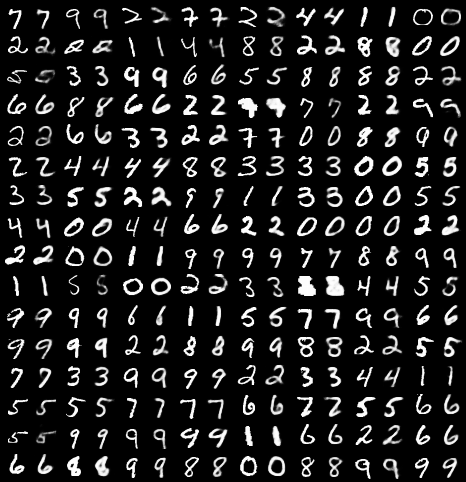 7 7 9 9 2 2 7 7 2 2 4 4 1 1 0 0
2 2 2 2 1 1 4 4 8 8 2 2 8 8 0 0
5 5 3 3 9 9 6 6 5 5 8 8 8 8 2 2
6 6 8 8 6 6 2 2 7 7 2 2 9 9
2 2 6 6 3 3 2 2 7 7 0 0 8 8 9 9
2 2 4 4 4 4 8 8 3 3 3 3 0 0 5 5
3 3 5 5 2 2 9 9 1 1 3 3 0 0 5 5
4 4 0 0 4 4 6 6 2 2 0 0 0 0 2 2
2 2 0 0 1 1 9 9 9 9 7 7 8 8 9 9
1 1 5 5 0 0 2 2 3 3 4 4 5 5
9 9 9 9 6 6 1 1 5 5 7 7 9 9 6 6
9 9 9 9 2 2 8 8 9 9 8 8 2 2 5 5
7 7 3 3 9 9 9 9 2 2 3 3 4 4 1 1
5 5 5 5 7 7 7 7 6 6 7 7 5 5 6 6
5 5 9 9 9 9 9 9 1 1 6 6 2 2 6 6
6 6 8 8 9 9 8 8 0 0 8 8 9 9 9 9